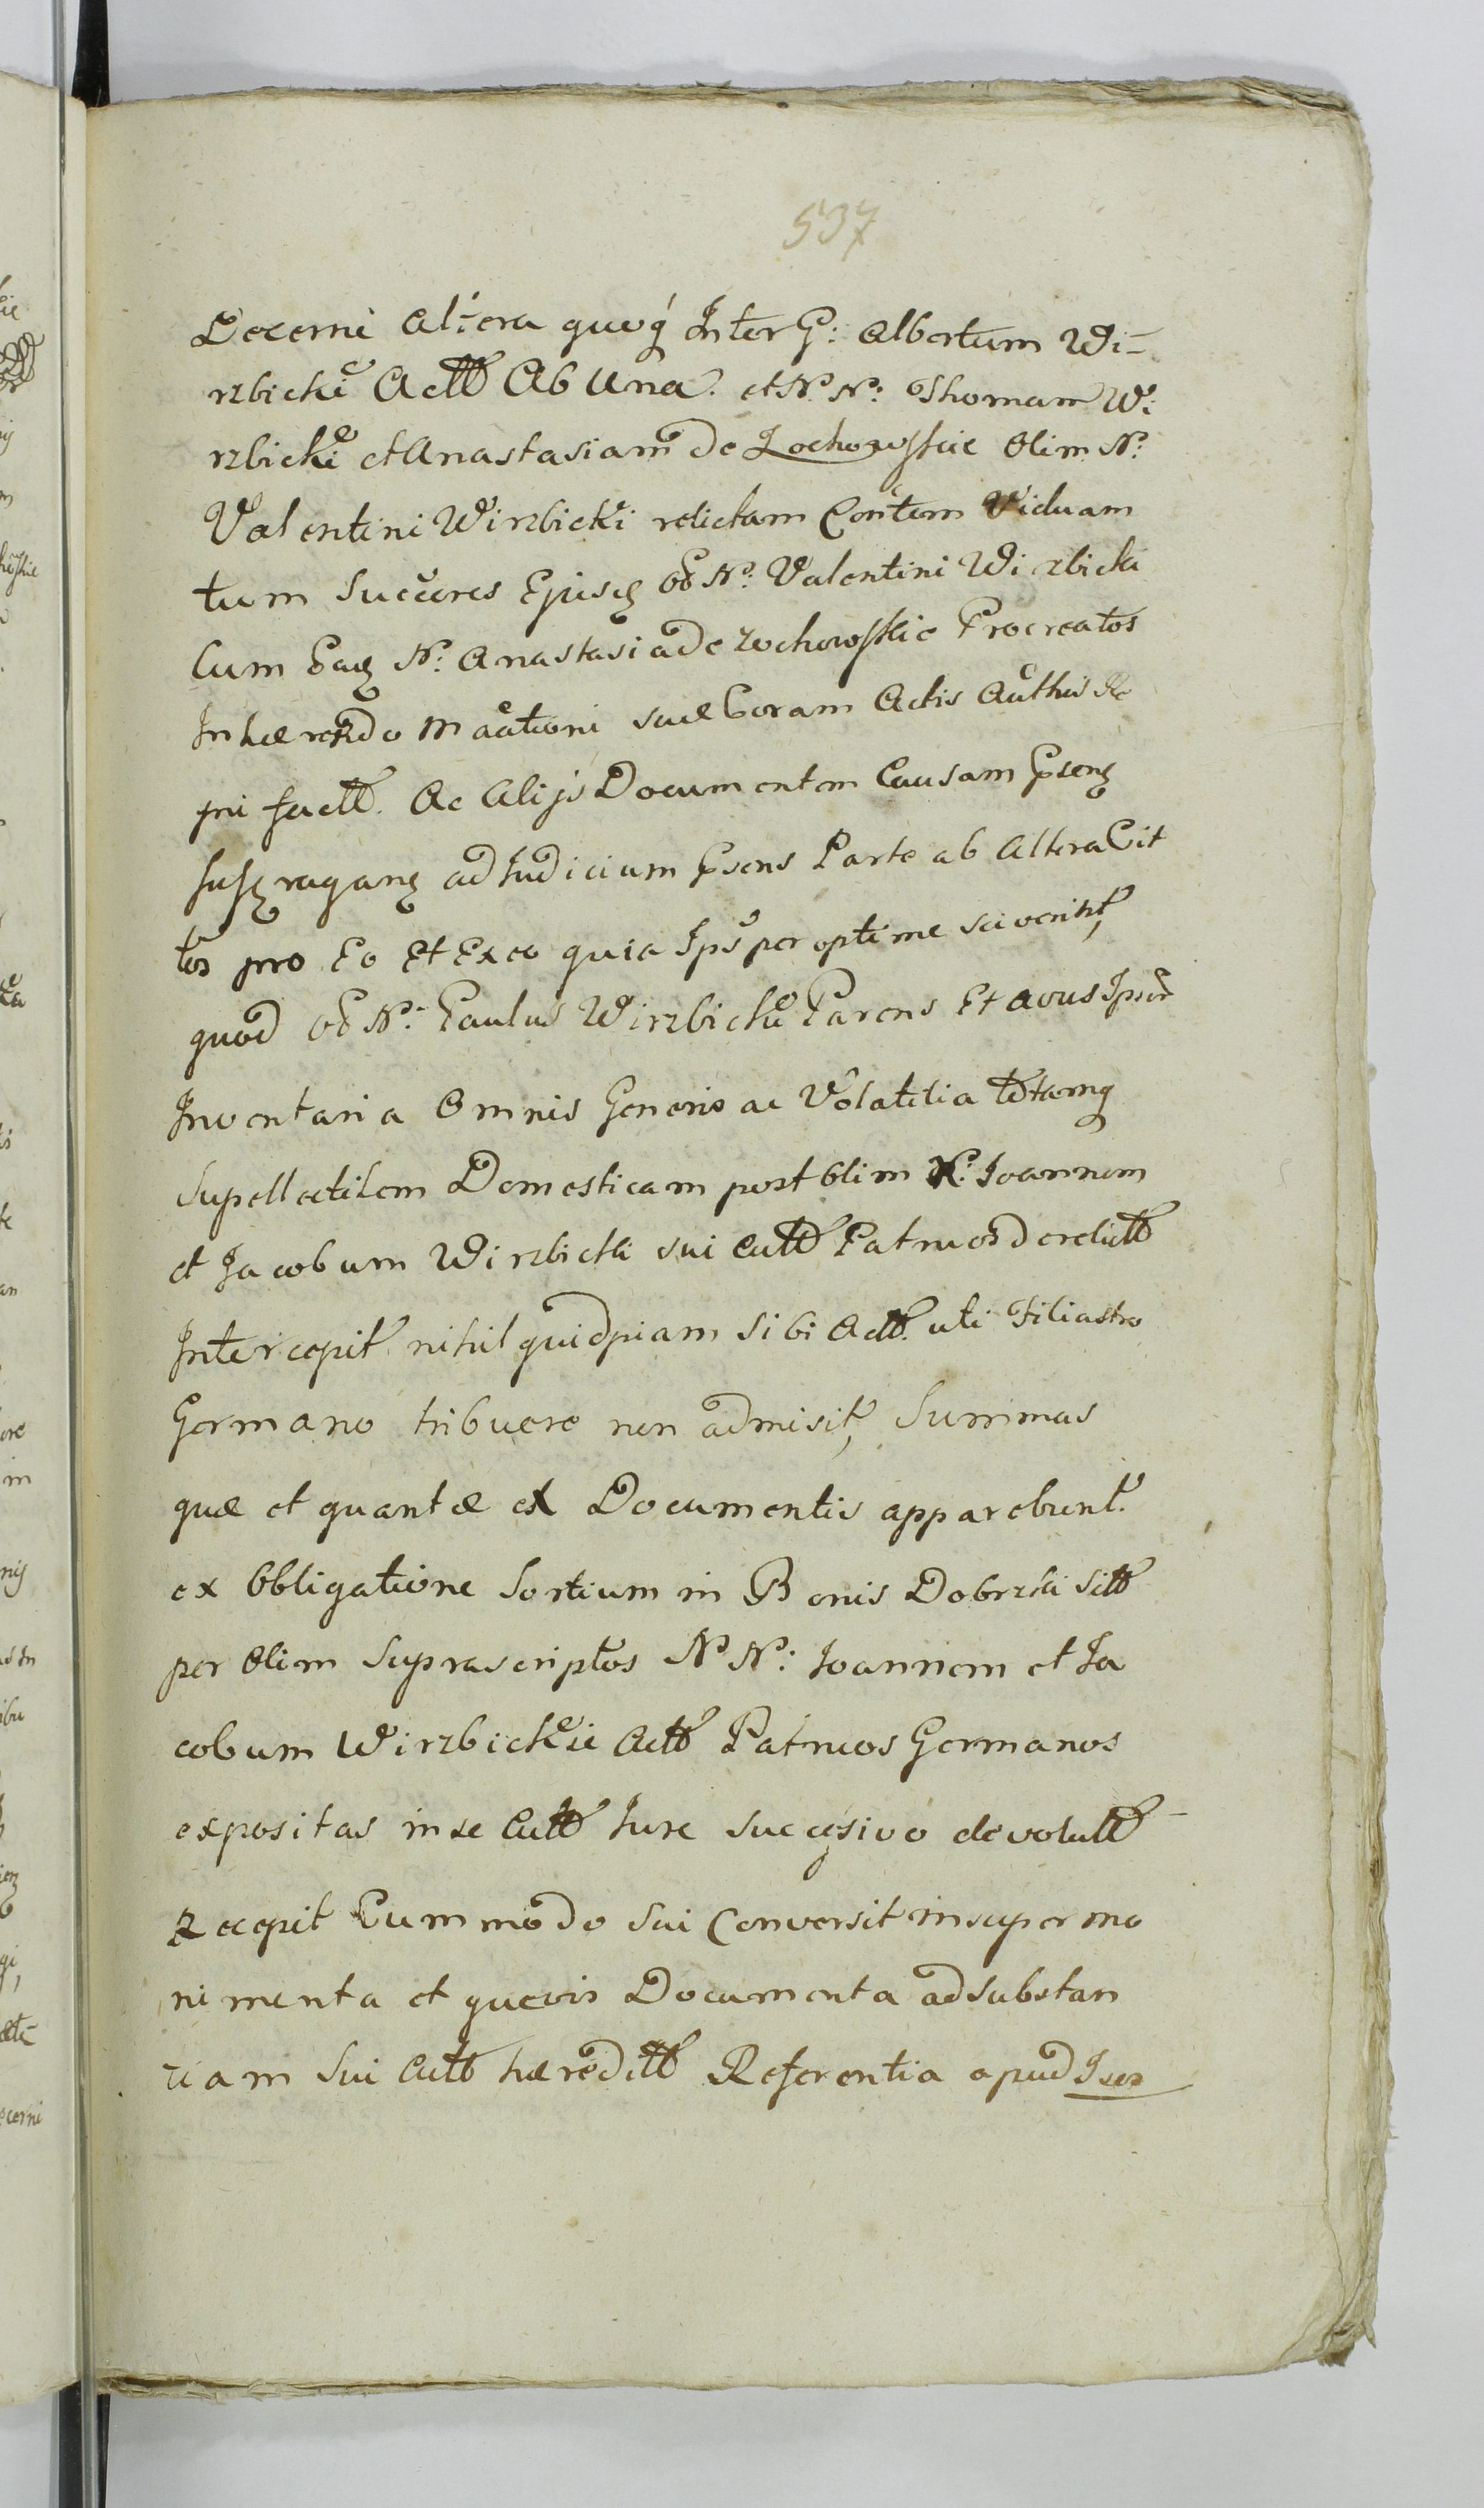 537
Decerni Altera quoq Inter G: Albertum Wi-
rzbicki Actt Ab Una. et N. N: Thomam Wi
rzbicki et Anastasiam de Zochowskie Olim N:
Valentini Wirzbicki relictam Contem Viduam
tum Succeres Ejusq ob N: Valentini Wirzbicki
Cum Eaq N: Anastasia de Zochowskie Procreatos
Inhærendo Maationi suæ Coram Actis Authis
pri factt. Ac Alijs Documentem Causam Psenq
ad Judicium Psens Parte ab Altera Cit
tos pro Eo Et Ex eo quia Ips peroptime sciverint,
quod ob N: Paulus Wirzbicki Parens Et avus Ipsor
Inventaria Omnis Generis ac Volatilia totamq
Supellectilem Domesticam post Olim N: Joannem
et Jacobum Wirzbicki sui Actt Patruos derelictt
Intercepit nihil quidpiam sibi Actt. uti Filiastro
Germano tribuere non admisit, Summas
quæ et quantæ ex Documentis apparebunt.
ex Obligatione Sortium in Bonis Dobrzki sitt
per Olim Suprascriptos N N: Joannem et Ja
cobum Wirzbickie Actt Patruos Germanos
expositas in se Actt Jure succesivo devolutt -
Recepit Cummodo sui Conversit insuper mo
nimenta et quævis Documenta ad Substan
tiam sui Actt hæreditt Referentia apud